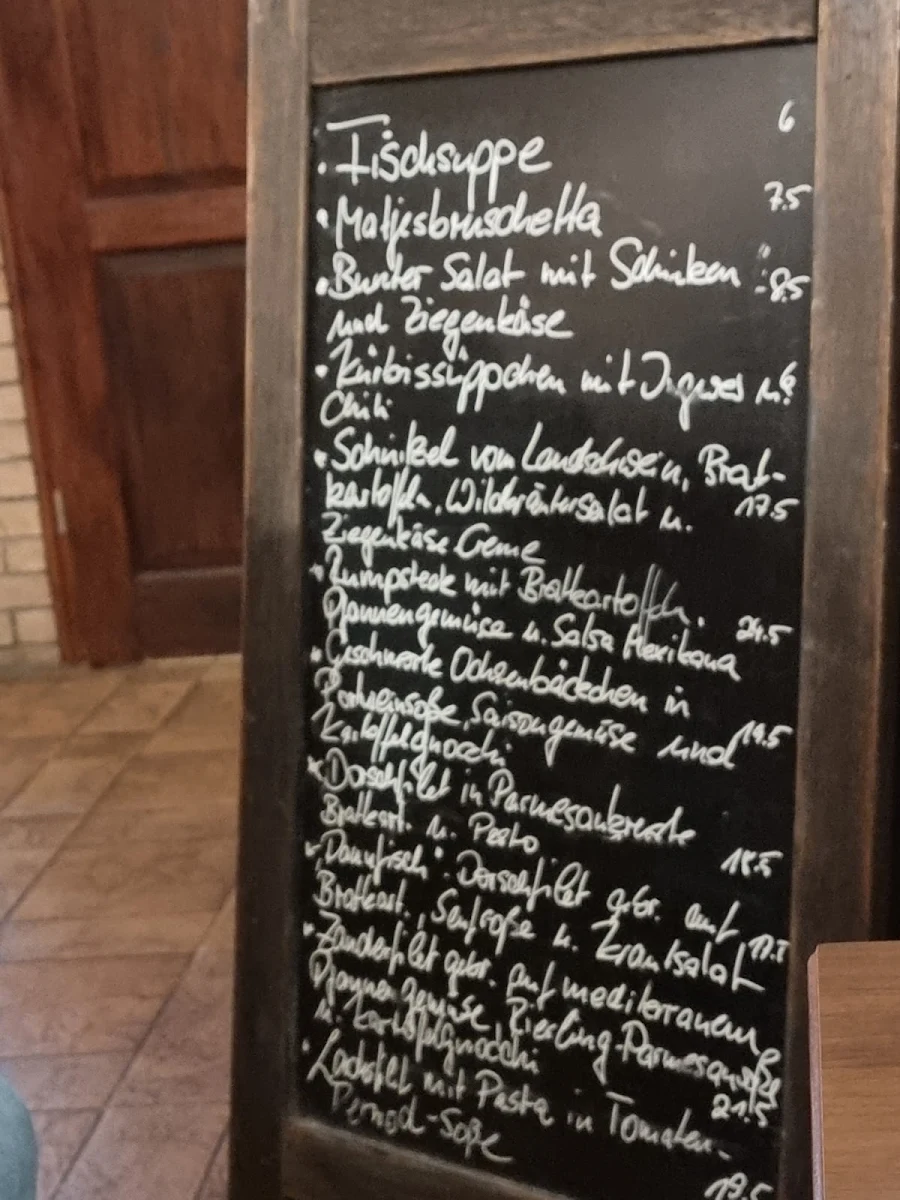 · Fischsuppe 6
· Matjesbruschetta 7.5
· Bunter Salat mit Schinken 8.5
und Ziegenkäse
· Kürbissüppchen mit Ingwer u. 6
Chili
· Schnitzel vom Landschwein, Brat-
kartoffeln, Wildkräutersalat u. 17.5
Ziegenkäse Creme
· Rumpsteak mit Bratkartoffeln,
Pfannengemüse u. Salsa Mexikana 24.5
· Geschmorte Ochsenbäckchen in
Portweinsoße, Saisongemüse und 19.5
Kartoffelgnocchi
· Dorschfilet in Parmesankruste
Bratkart. u. Pesto 18.5
· Dorschfilet gebr. auf
Bratkart., Senfsoße u. Krautsalat
· Zanderfilet gebr. auf mediterranem
Pfannengemüse Riesling-Parmesansoße
u. Kartoffelgnocchi 21.5
· Lachsfilet mit Pasta in Tomaten-
Pernod-Soße 19.5